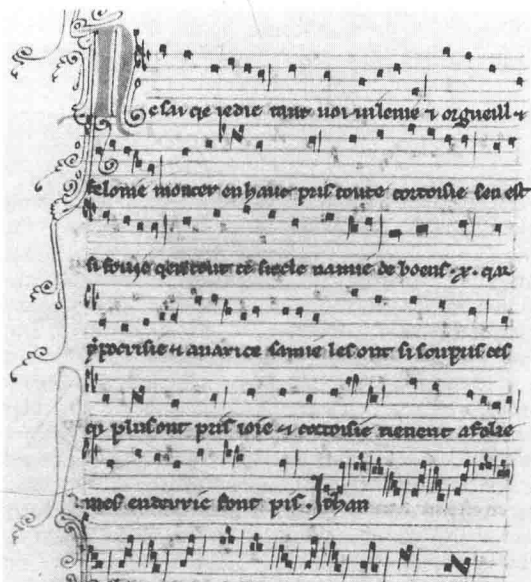 Ne sai qe ie die tant voi vilenie ⁊ orgueill ⁊
felonie monter en haut pris toute cortoisie sen est
si fouie qen tout ce siecle na mie de boens .x. qar
ypocrisie ⁊ auarice samie les ont si soupris ces
qi plus ont pris ioie ⁊ cortoisie tienent a folie
mes en derrie sont pis. Johan